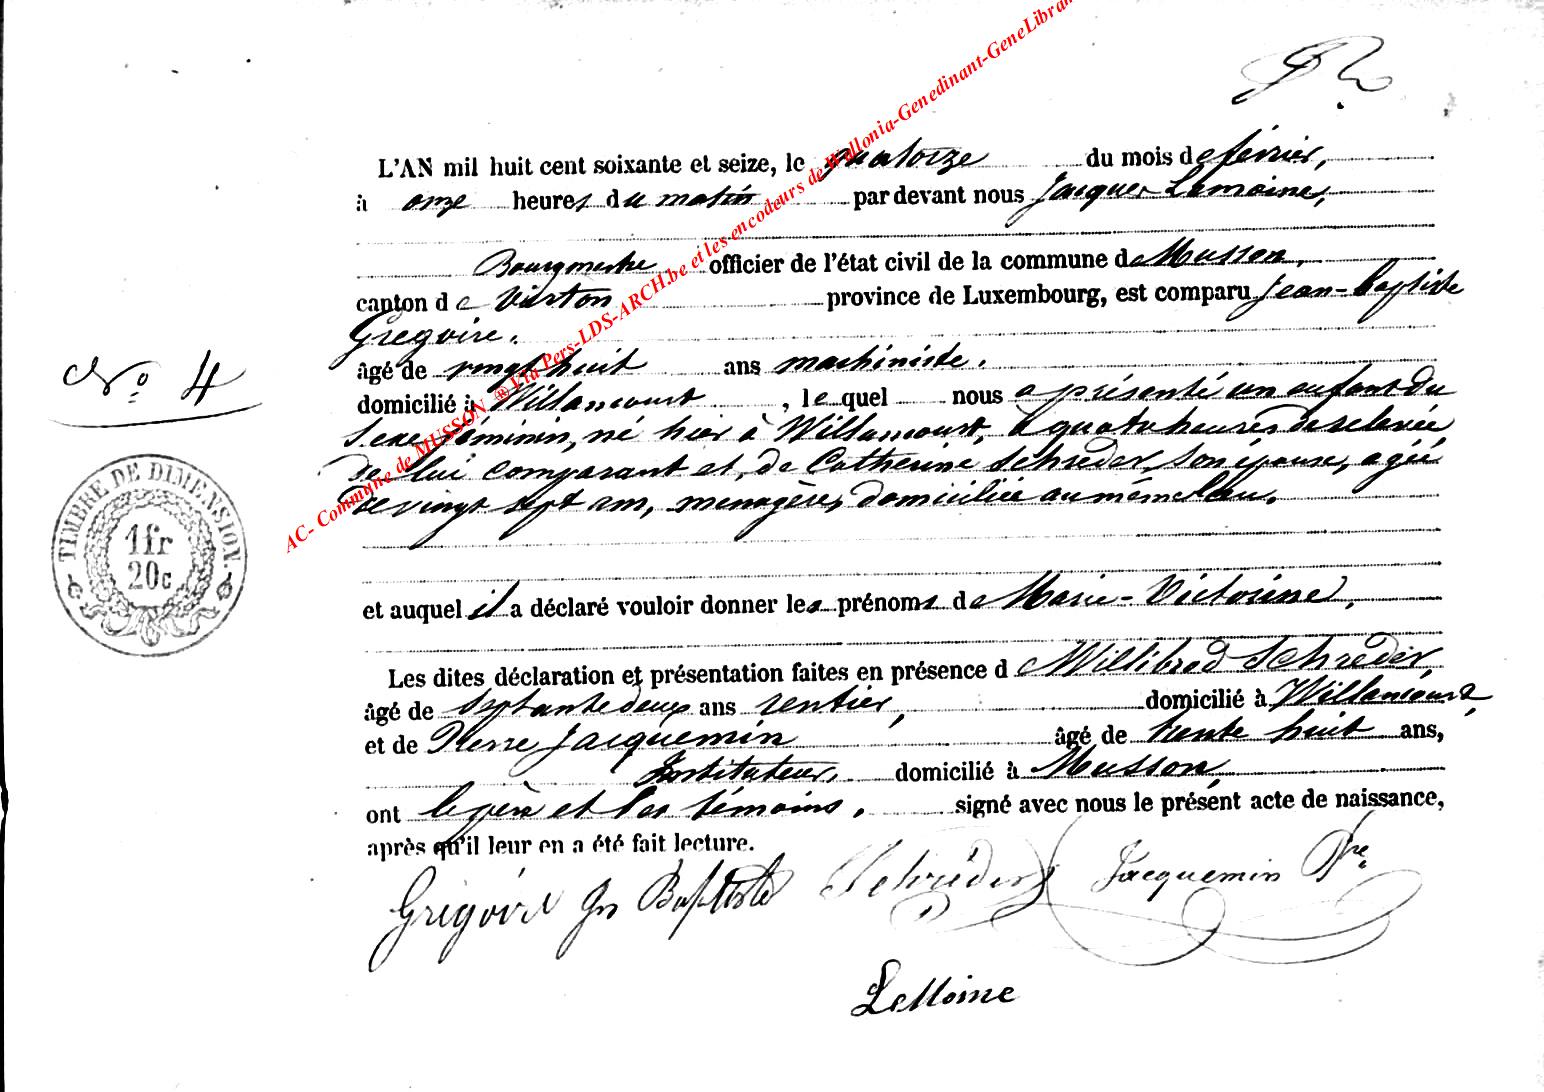 L'AN mil huit cent soixante et seize, le quatorze du mois de février,
à onze heures du matin par devant nous Jacques Lemoine,
Bourgmestre officier de l'état civil de la commune de Musson,
canton de Virton province de Luxembourg, est comparu Jean-Baptiste
Grégoire.
âgé de vingt huit ans machiniste.
domicilié à Willancourt, lequel nous a présenté un enfant du
sexe féminin, né hier à Willancourt, à quatre heures de relevée
de lui comparant et de Catherine Schréder, son épouse, agée
de vingt sept ans, menagère, domiciliée au même lieu.
et auquel il a déclaré vouloir donner les prénoms de Marie-Victorine,
Les dites déclaration et présentation faites en présence de Willibrod Schréder,
âgé de septante deux ans rentier, domicilié à Willancourt,
et de Pierre Jacquemin âgé de trente huit ans,
Instituteur, domicilié à Musson,
ont le père et les témoins, signé avec nous le présent acte de naissance,
après qu'il leur en a été fait lecture.
Grégoire Jn Baptiste Schréder Jacquemin Pre
LeMoine
No 4
TIMBRE DE DIMENSION.
1fr
20c
AC- Commune de MUSSON ® Via Pers-LDS-ARCH.be et les encodeurs de Wallonia-Genedinant-GeneLibran